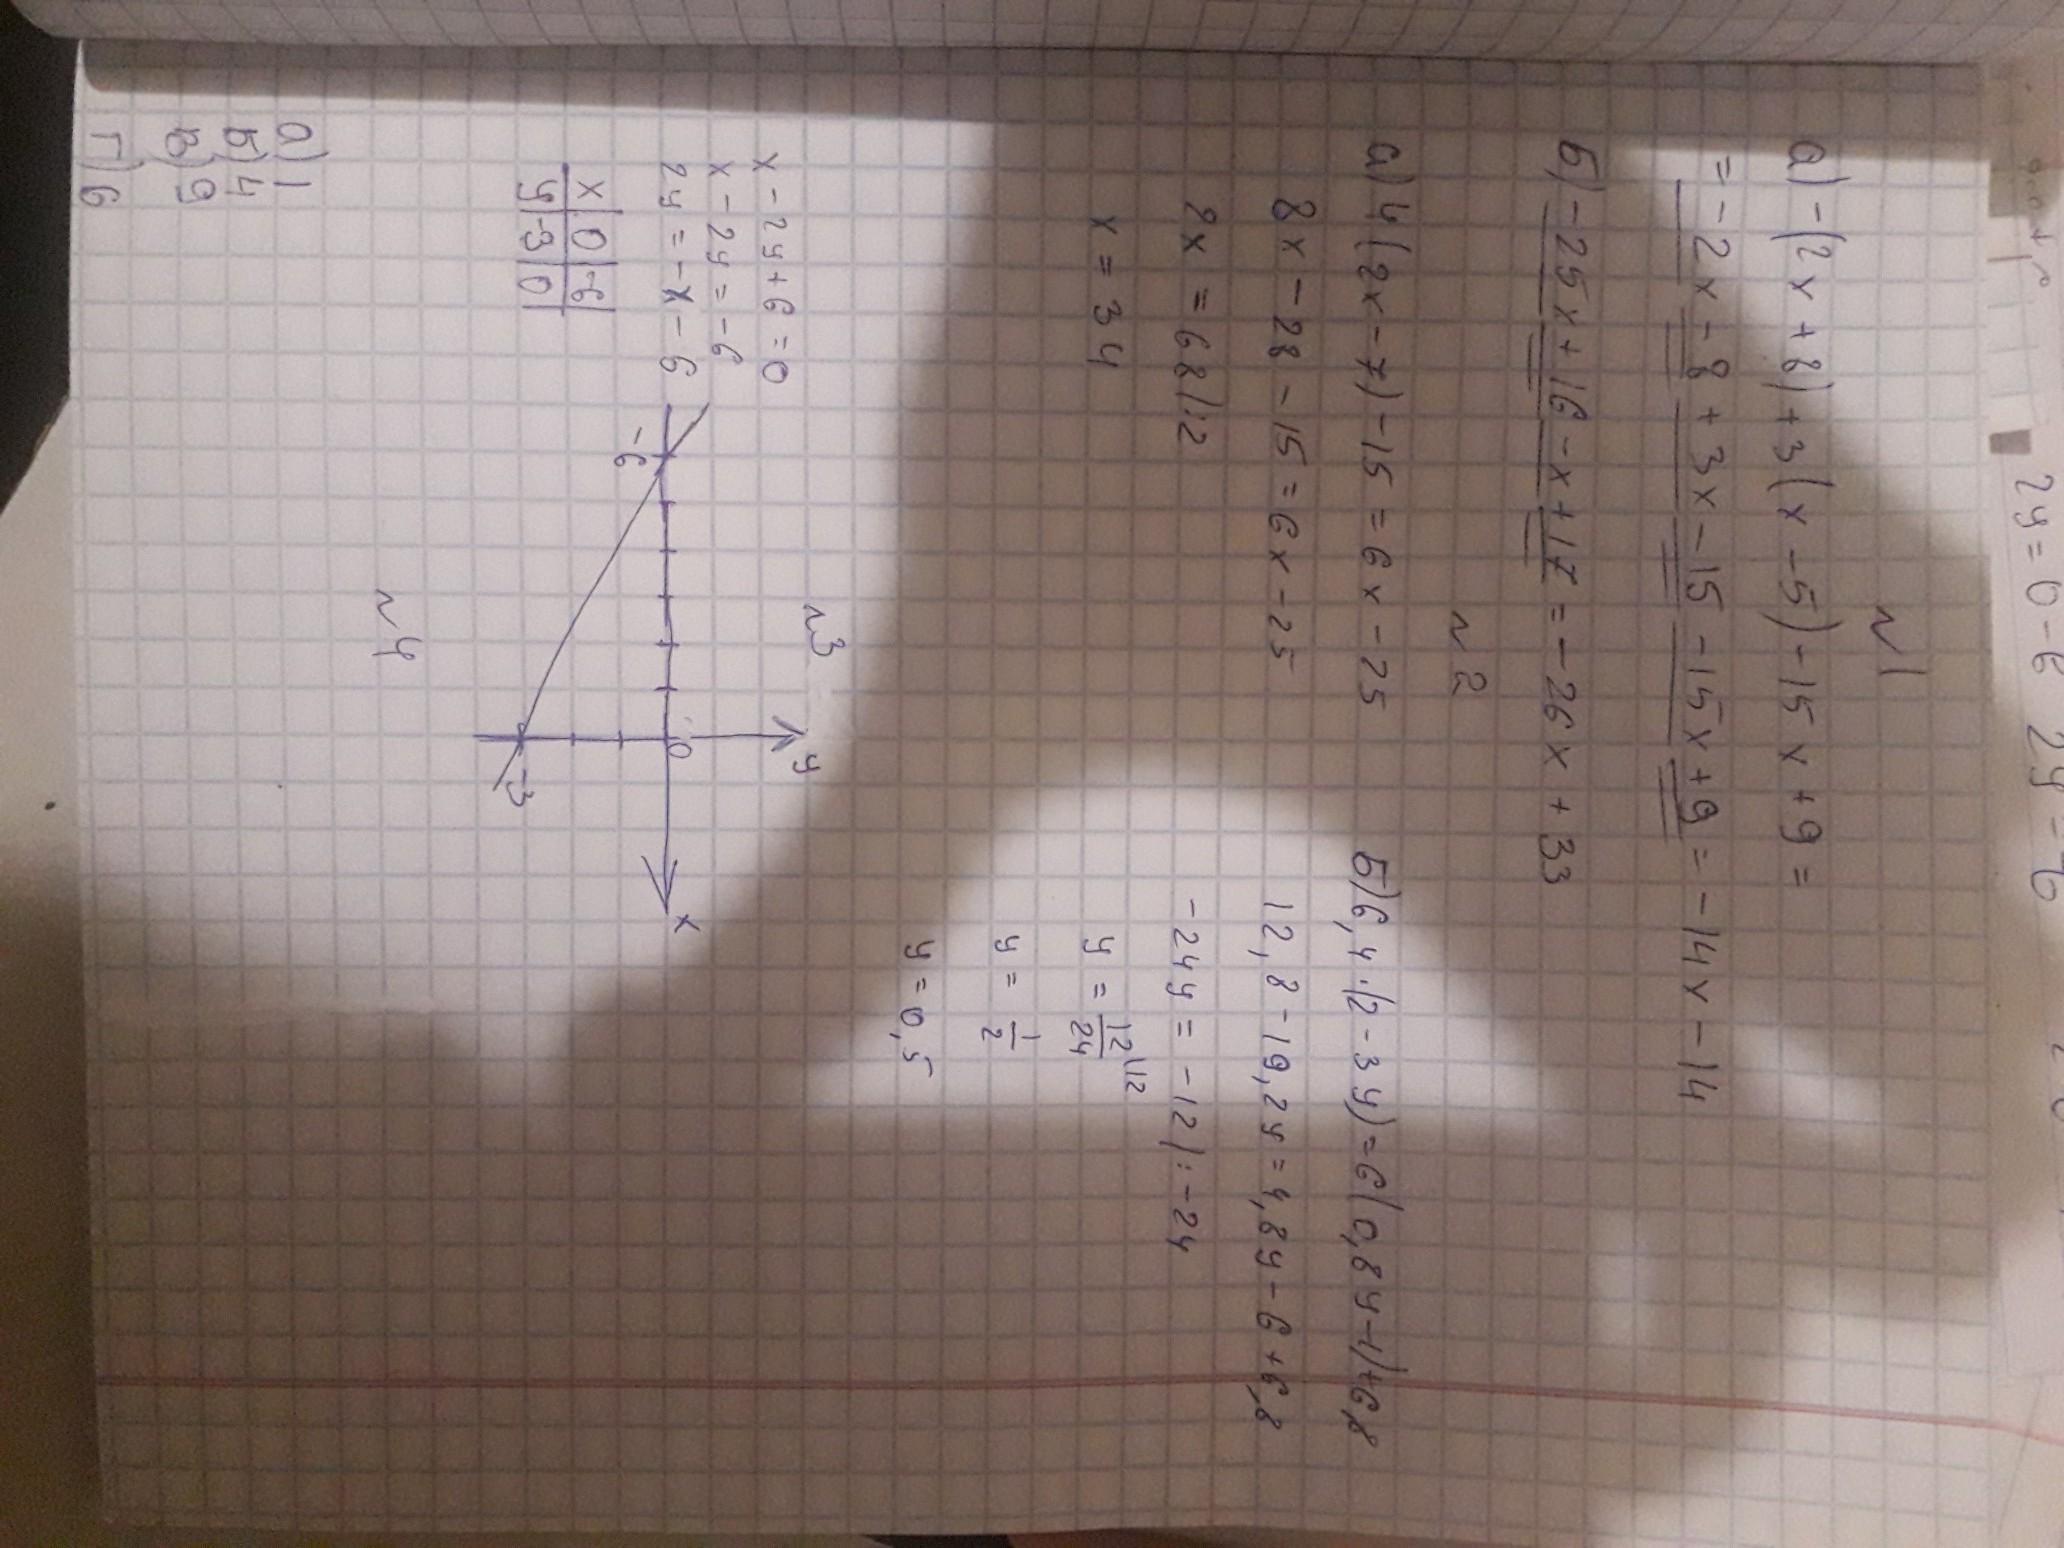 2y = 0 - 6 2y = 6
N1
а) -(2x + 8) + 3(x - 5) - 15x + 9 =
= -2x - 8 + 3x - 15 - 15x + 9 = -14x - 14
б) -25x + 16 - x + 17 = -26x + 33
N2
а) 4(2x - 7) - 15 = 6x - 25
8x - 28 - 15 = 6x - 25
2x = 68 |:2
x = 34
б) 6,4·(2 - 3y) = 6(0,8y - 1) + 6,8
12,8 - 19,2y = 4,8y - 6 + 6,8
-24y = -12 |: -24
y = 12/24 \12
y = 1/2
y = 0,5
N3
x - 2y + 6 = 0
x - 2y = -6
2y = -x - 6
x | 0 | -6
y | -3 | 0
y
x
0
-6
-3
N4
а) 1
б) 4
в) 9
г) 6